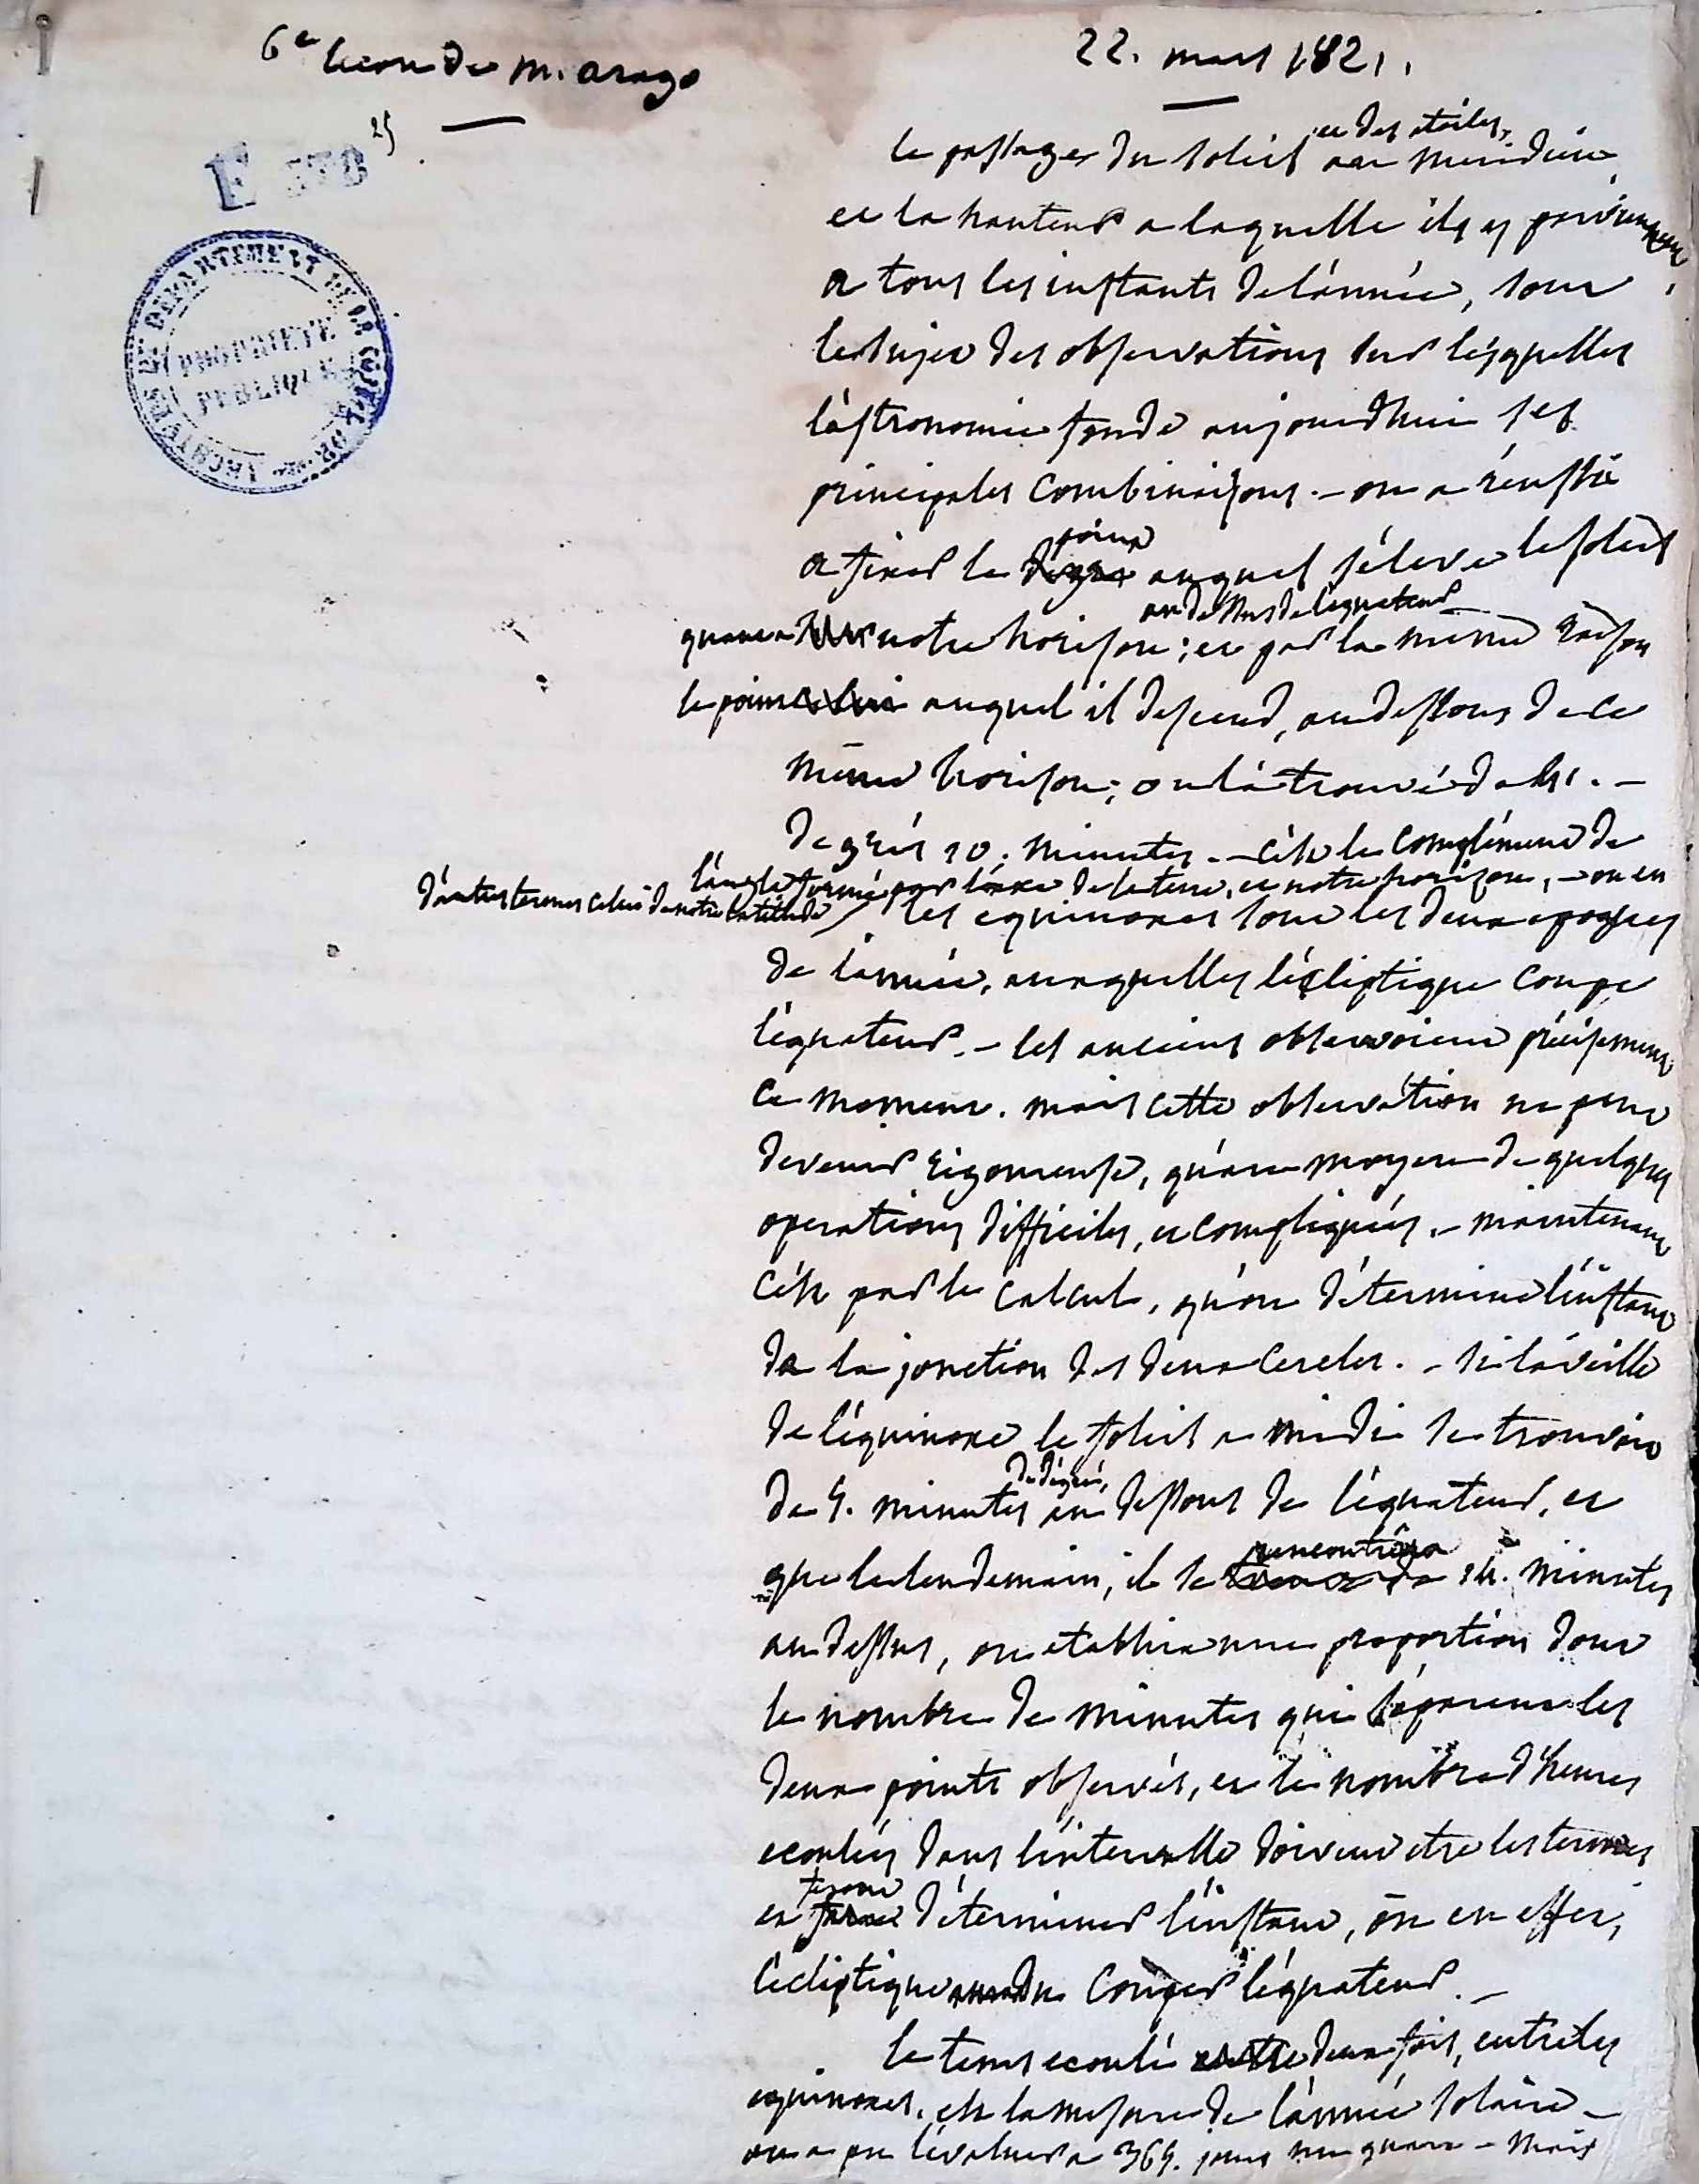 6e leçon de m. arago
22. mars 1821.
25
F 378
ARCHIVES DU DEPARTEMENT DE LA CÔTE D'OR
PROPRIETE PUBLIQUE
et des etoiles,
le passage du soleil au meridien
et la hauteur a laquelle ils y parviennent
a tous les instants de l'année, sont
le sujet des observations sur lesquelles
l'astronomie fonde aujourdhui ses
principales combinaisons. – on a réussi
point
a fixer le degré auquel s'éleve le soleil
au dessus de l'equateur
quant a notre horison ; et par la meme raison
le point auquel il descend, au dessous de ce
même horison ; on l'a trouvé de 41. –
degrés 10. minutes. – c'est le complément de
l'angle formé par l'axe de la terre, et notre horizon, – ou en
d'autres termes celui de notre latitude / les equinoxes sont les deux epoques
de l'année, auxquelles l'écliptique coupe
l'équateur. – les anciens observoient précisement
ce moment. mais cette observation ne peut
devenir rigoureuse, qu'au moyen de quelques
operations difficiles, et compliquées. – maintenant
c'est par le calcul, qu'on détermine l'instant
de la jonction des deux cercles. – si la veille
de l'équinoxe le soleil a midi se trouvoit
de dégré,
de 5. minutes au dessous de l'équateur, et
rencontrera
que le lendemain, il se trouve de à 14. minutes
au dessus, on etablira une proportion dont
le nombre de minutes qui séparent les
deux points observés, et le nombre d'heures
ecoulées dans l'intervalle doivent etre les termes
feront
et déterminer l'instant, où en effet,
l'ecliptique a du couper l'équateur. –
le tems ecoulé entre deux fois, entre les
equinoxes, est la mesure de l'année solaire –
on a pu l'évaluer a 365. jours un quart – mais